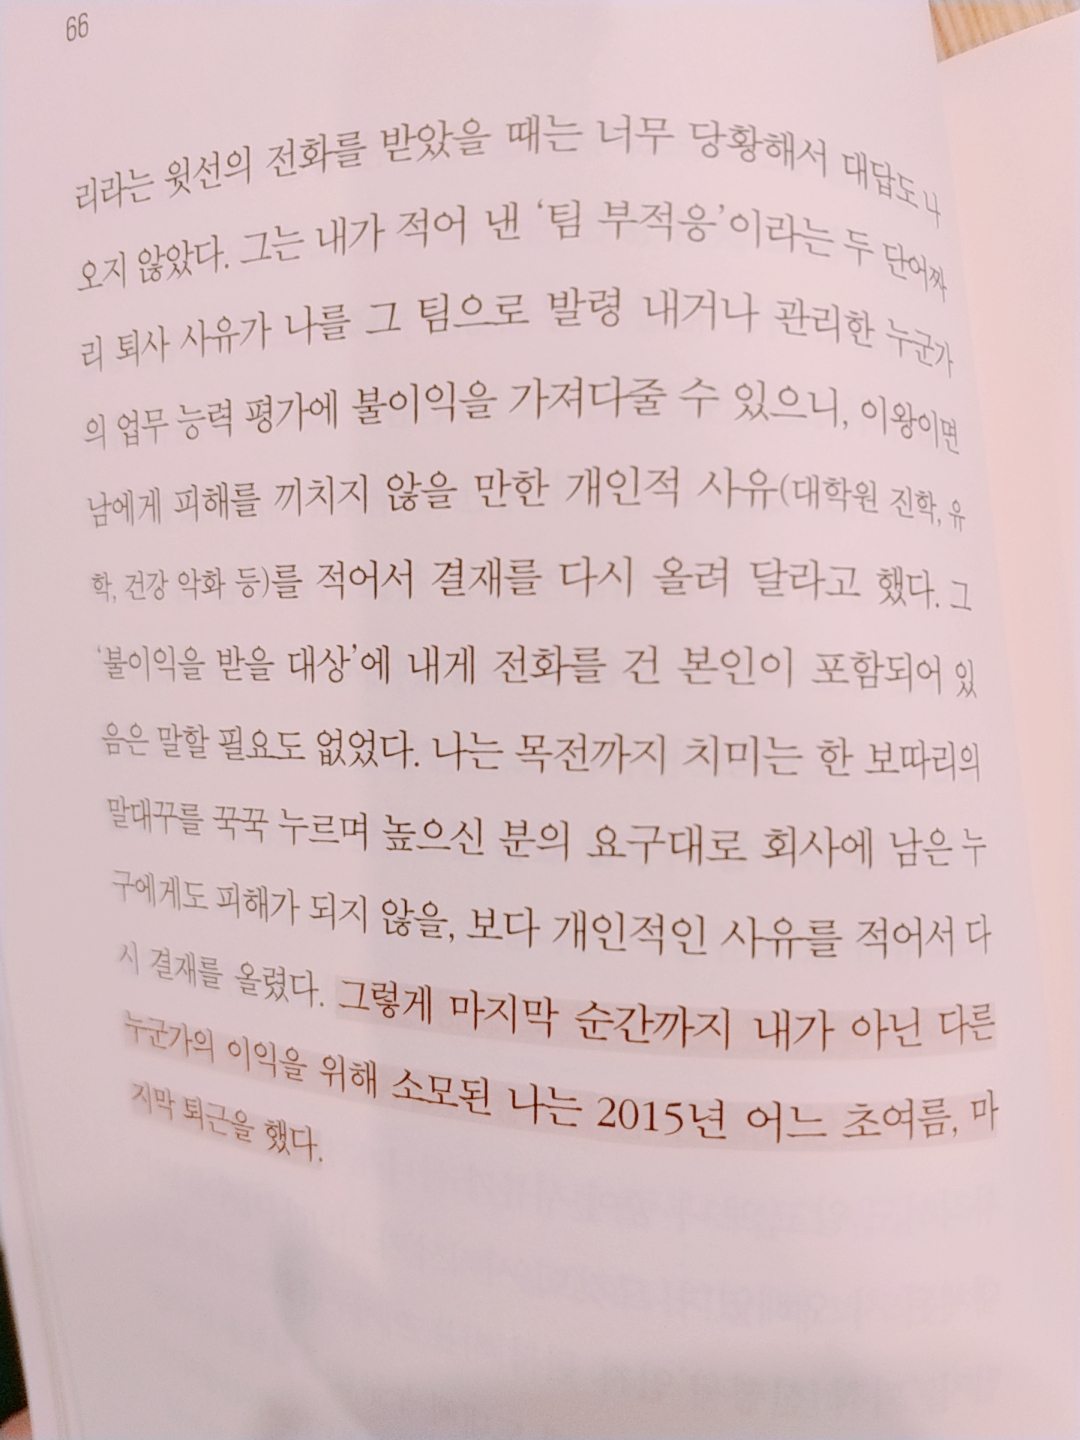 66
리라는 윗선의 전화를 받았을 때는 너무 당황해서 대답도 나
오지 않았다. 그는 내가 적어 낸 ‘팀 부적응’이라는 두 단어짜
리 퇴사 사유가 나를 그 팀으로 발령 내거나 관리한 누군가
의 업무 능력 평가에 불이익을 가져다줄 수 있으니, 이왕이면
남에게 피해를 끼치지 않을 만한 개인적 사유(대학원 진학, 유
학, 건강 악화 등)를 적어서 결재를 다시 올려 달라고 했다. 그
‘불이익을 받을 대상’에 내게 전화를 건 본인이 포함되어 있
음은 말할 필요도 없었다. 나는 목전까지 치미는 한 보따리의
말대꾸를 꾹꾹 누르며 높으신 분의 요구대로 회사에 남은 누
구에게도 피해가 되지 않을, 보다 개인적인 사유를 적어서 다
시 결재를 올렸다. 그렇게 마지막 순간까지 내가 아닌 다른
누군가의 이익을 위해 소모된 나는 2015년 어느 초여름, 마
지막 퇴근을 했다.